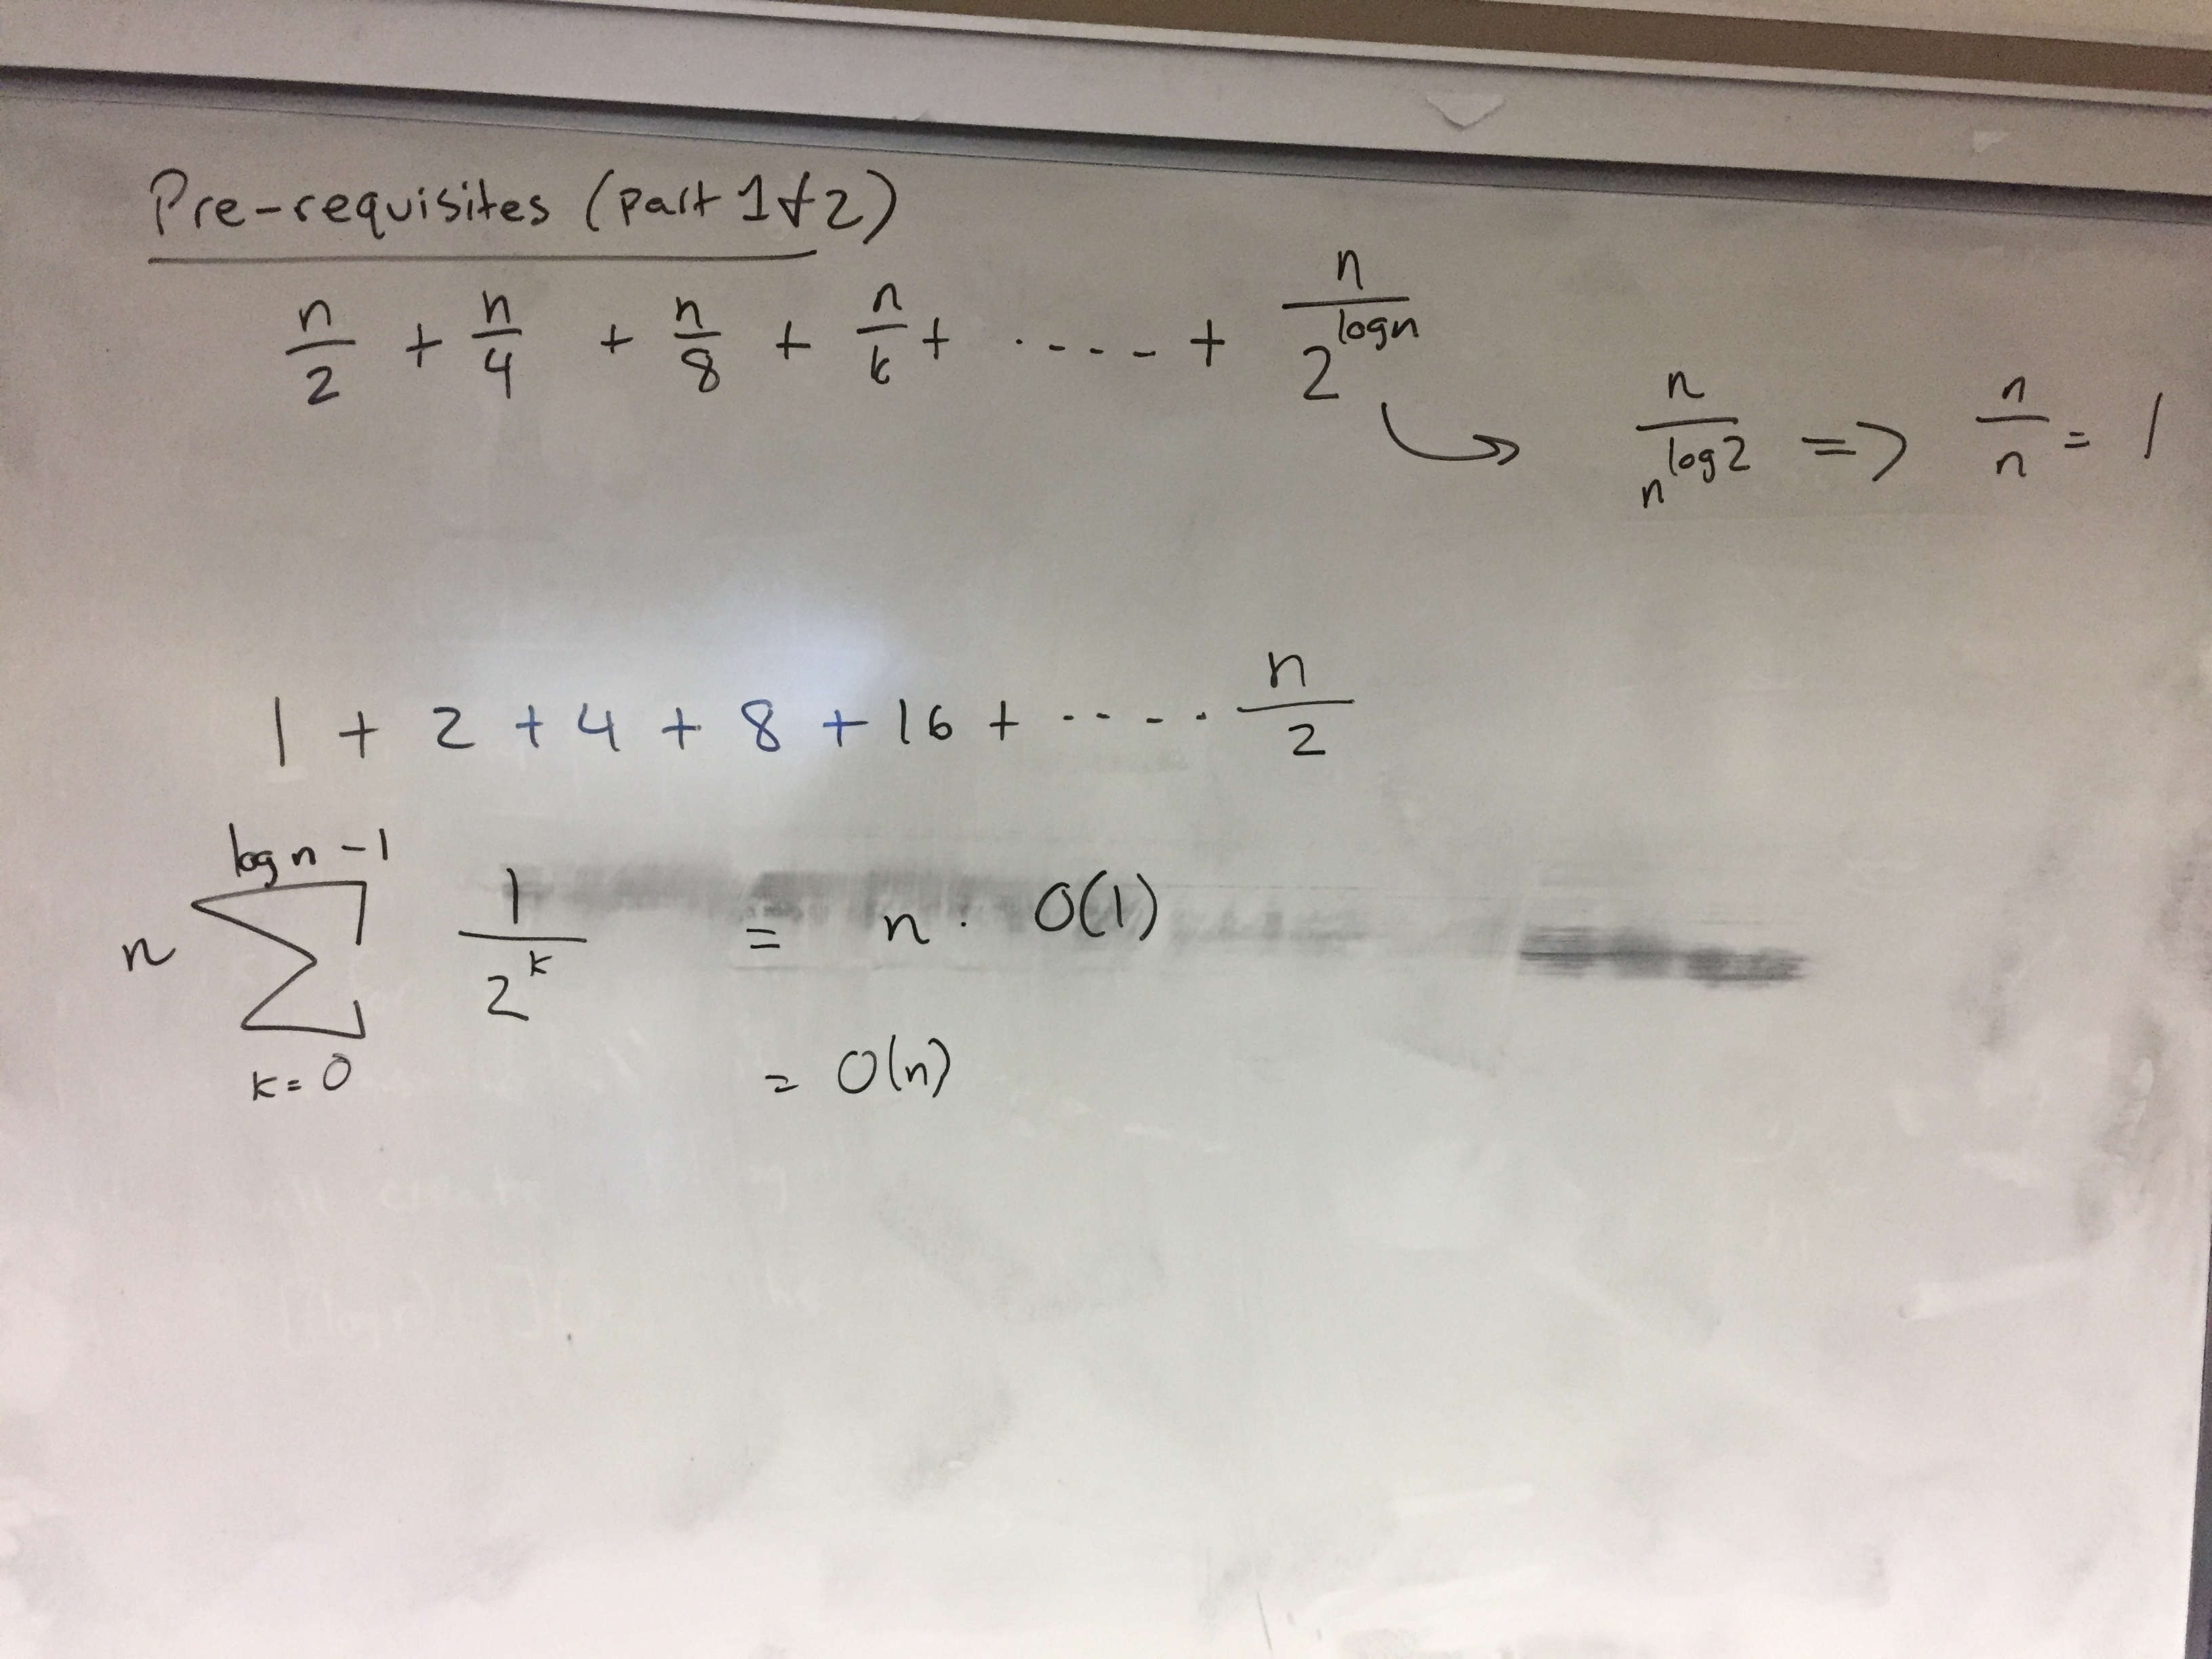 Pre-requisites (part 1 of 2)
n/2 + n/4 + n/8 + n/k + ..... + n/2^logn
n/n^log2 => n/n = 1
1 + 2 + 4 + 8 + 16 + ..... n/2
n ∑_{k=0}^{logn-1} 1/2^k = n · O(1)
= O(n)